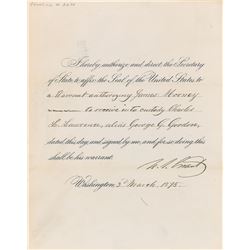 I hereby authorize and direct the Secretary
of State to affix the Seal of the United States to
a Warrant authorizing James Mooney
to receive into custody Charles
L. Lawrence, alias George G. Gordon,
dated this day, and signed by me, and for so doing this
shall be his warrant.
U. S. Grant
Washington, 3d March, 1875.